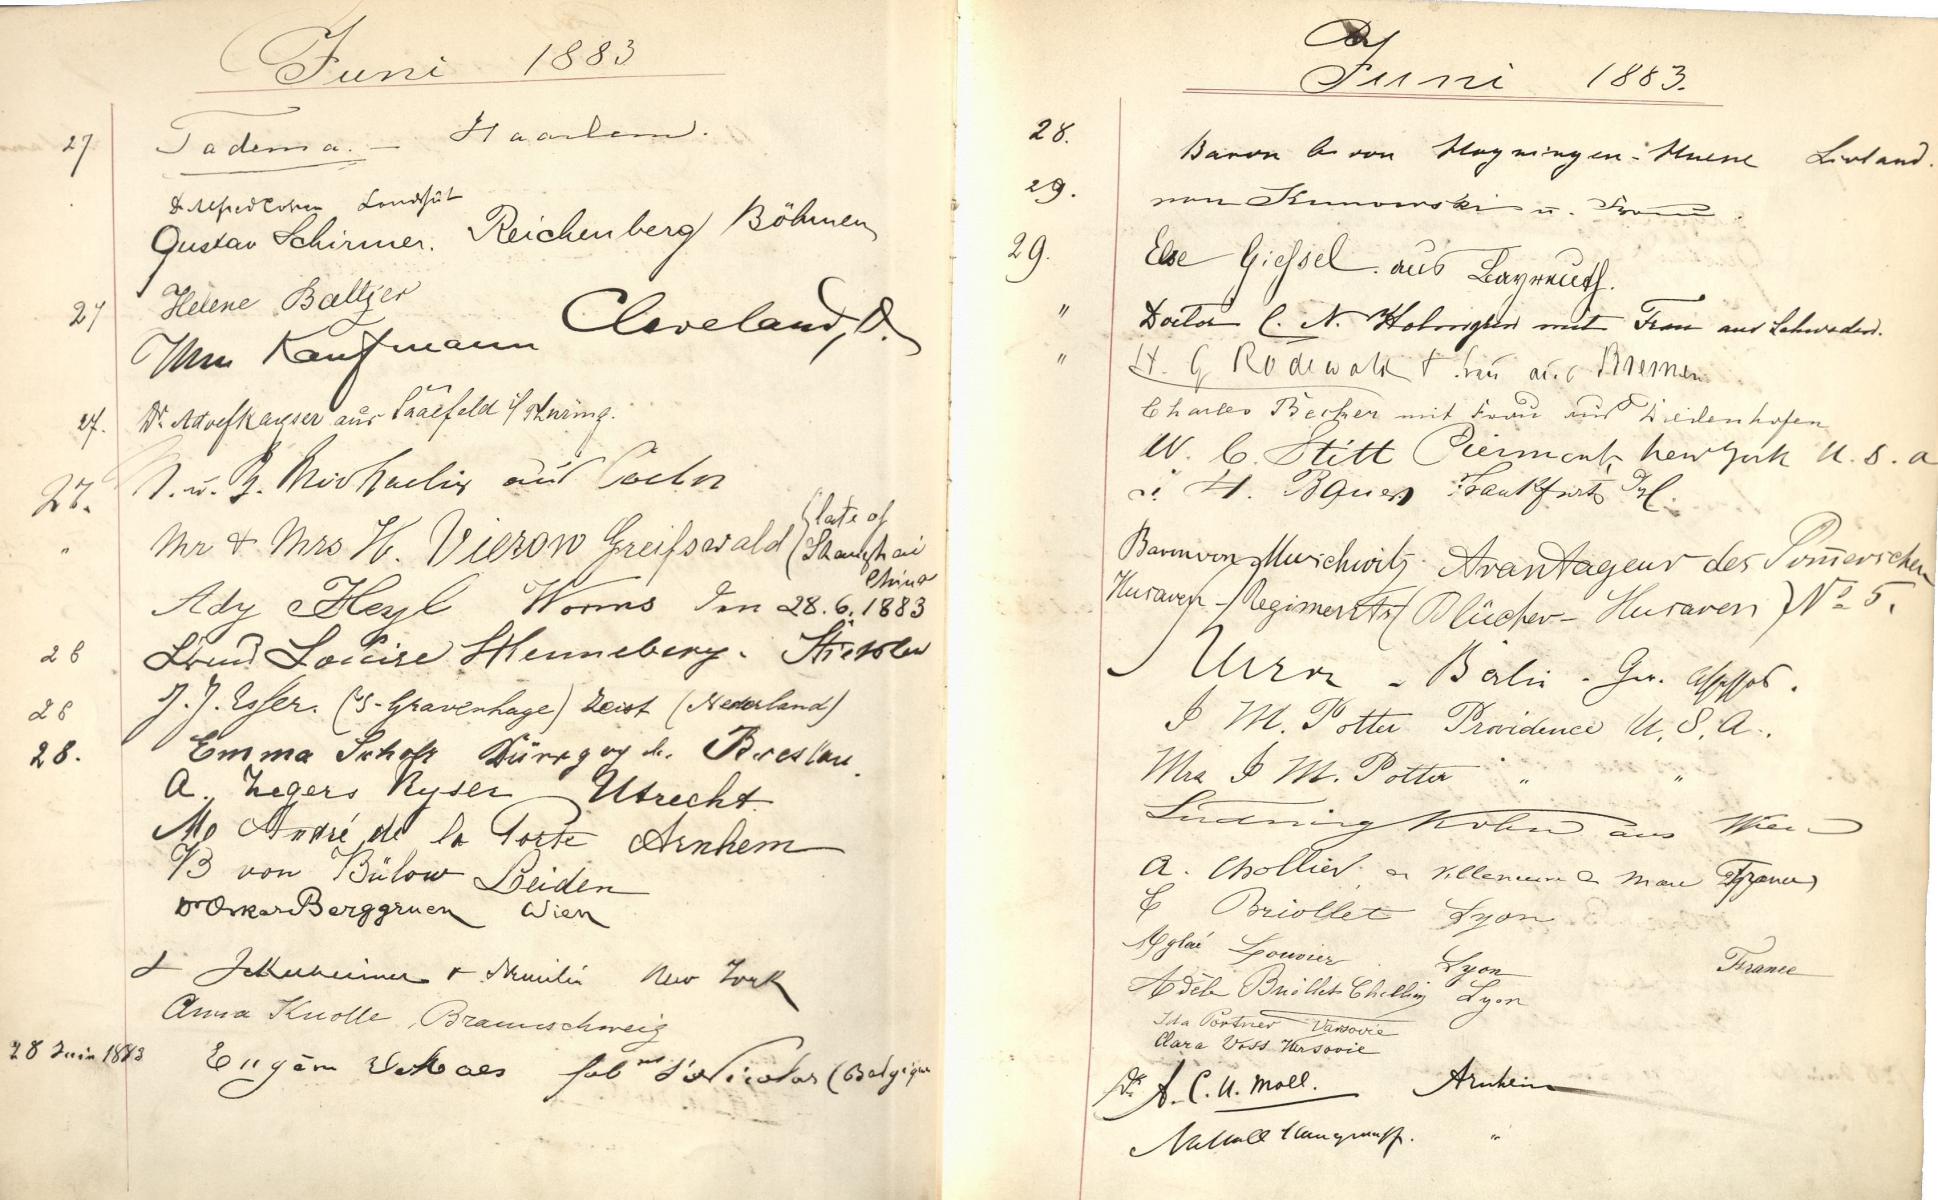 Juni 1883
27 Tadema. – Haarlem.
Landshut
Gustav Schirmer. Reichenberg Böhmen
Helene Baltzer
27 Wm Kaufmann Cleveland, O.
27. Dr. Adolf Kayser aus Saalfeld i/Thüring.
27. Michaelis aus Coeln
" Mr & Mrs H. Vierow Greifswald (late of
Shanghai
China
Ady Heyl Worms den 28.6.1883
28 Louise Henneberg.
28 J. J. Esser. ('s-Gravenhage) Zeist (Nederland)
28. Emma Schoß Breslau.
A. Zegers Ryser Utrecht
André de la Porte Arnhem
B von Bülow Leiden
Dr Oskar Berggruen Wien
& Familie New York
Anna Knolle, Braunschweig
28 Juin 1883 St Nicolas (Belgique
Juni 1883.
28. Baron von Hoyningen-Huene Livland.
29. von Kunowski u. Frau
29. Else Gießel aus Bayreuth.
" Doctor C. N. Holmgren mit Frau aus Schweden.
" H. G Rodewald & Frau aus Bremen
Charles Becker mit Frau aus Diedenhofen
W. C. Stitt Piermont, New York U.S.A
H. Bauer Frankfurt
Baron von Avantageur des Pommerschen
Husaren-Regiments (Blücher-Husaren) No 5.
Berlin – Ger. Assessor.
I M. Potter Providence U.S.A.
Mrs I M. Potter " "
Ludwig Kohn aus Wien
A. Chollier France
E Briollet Lyon
Aglaé Louvier Lyon France
Adèle Briollet Lyon
Ida Portner Varsovie
Clara Voss Varsovie
Dr. A. C. U. Moll. Arnhem
"